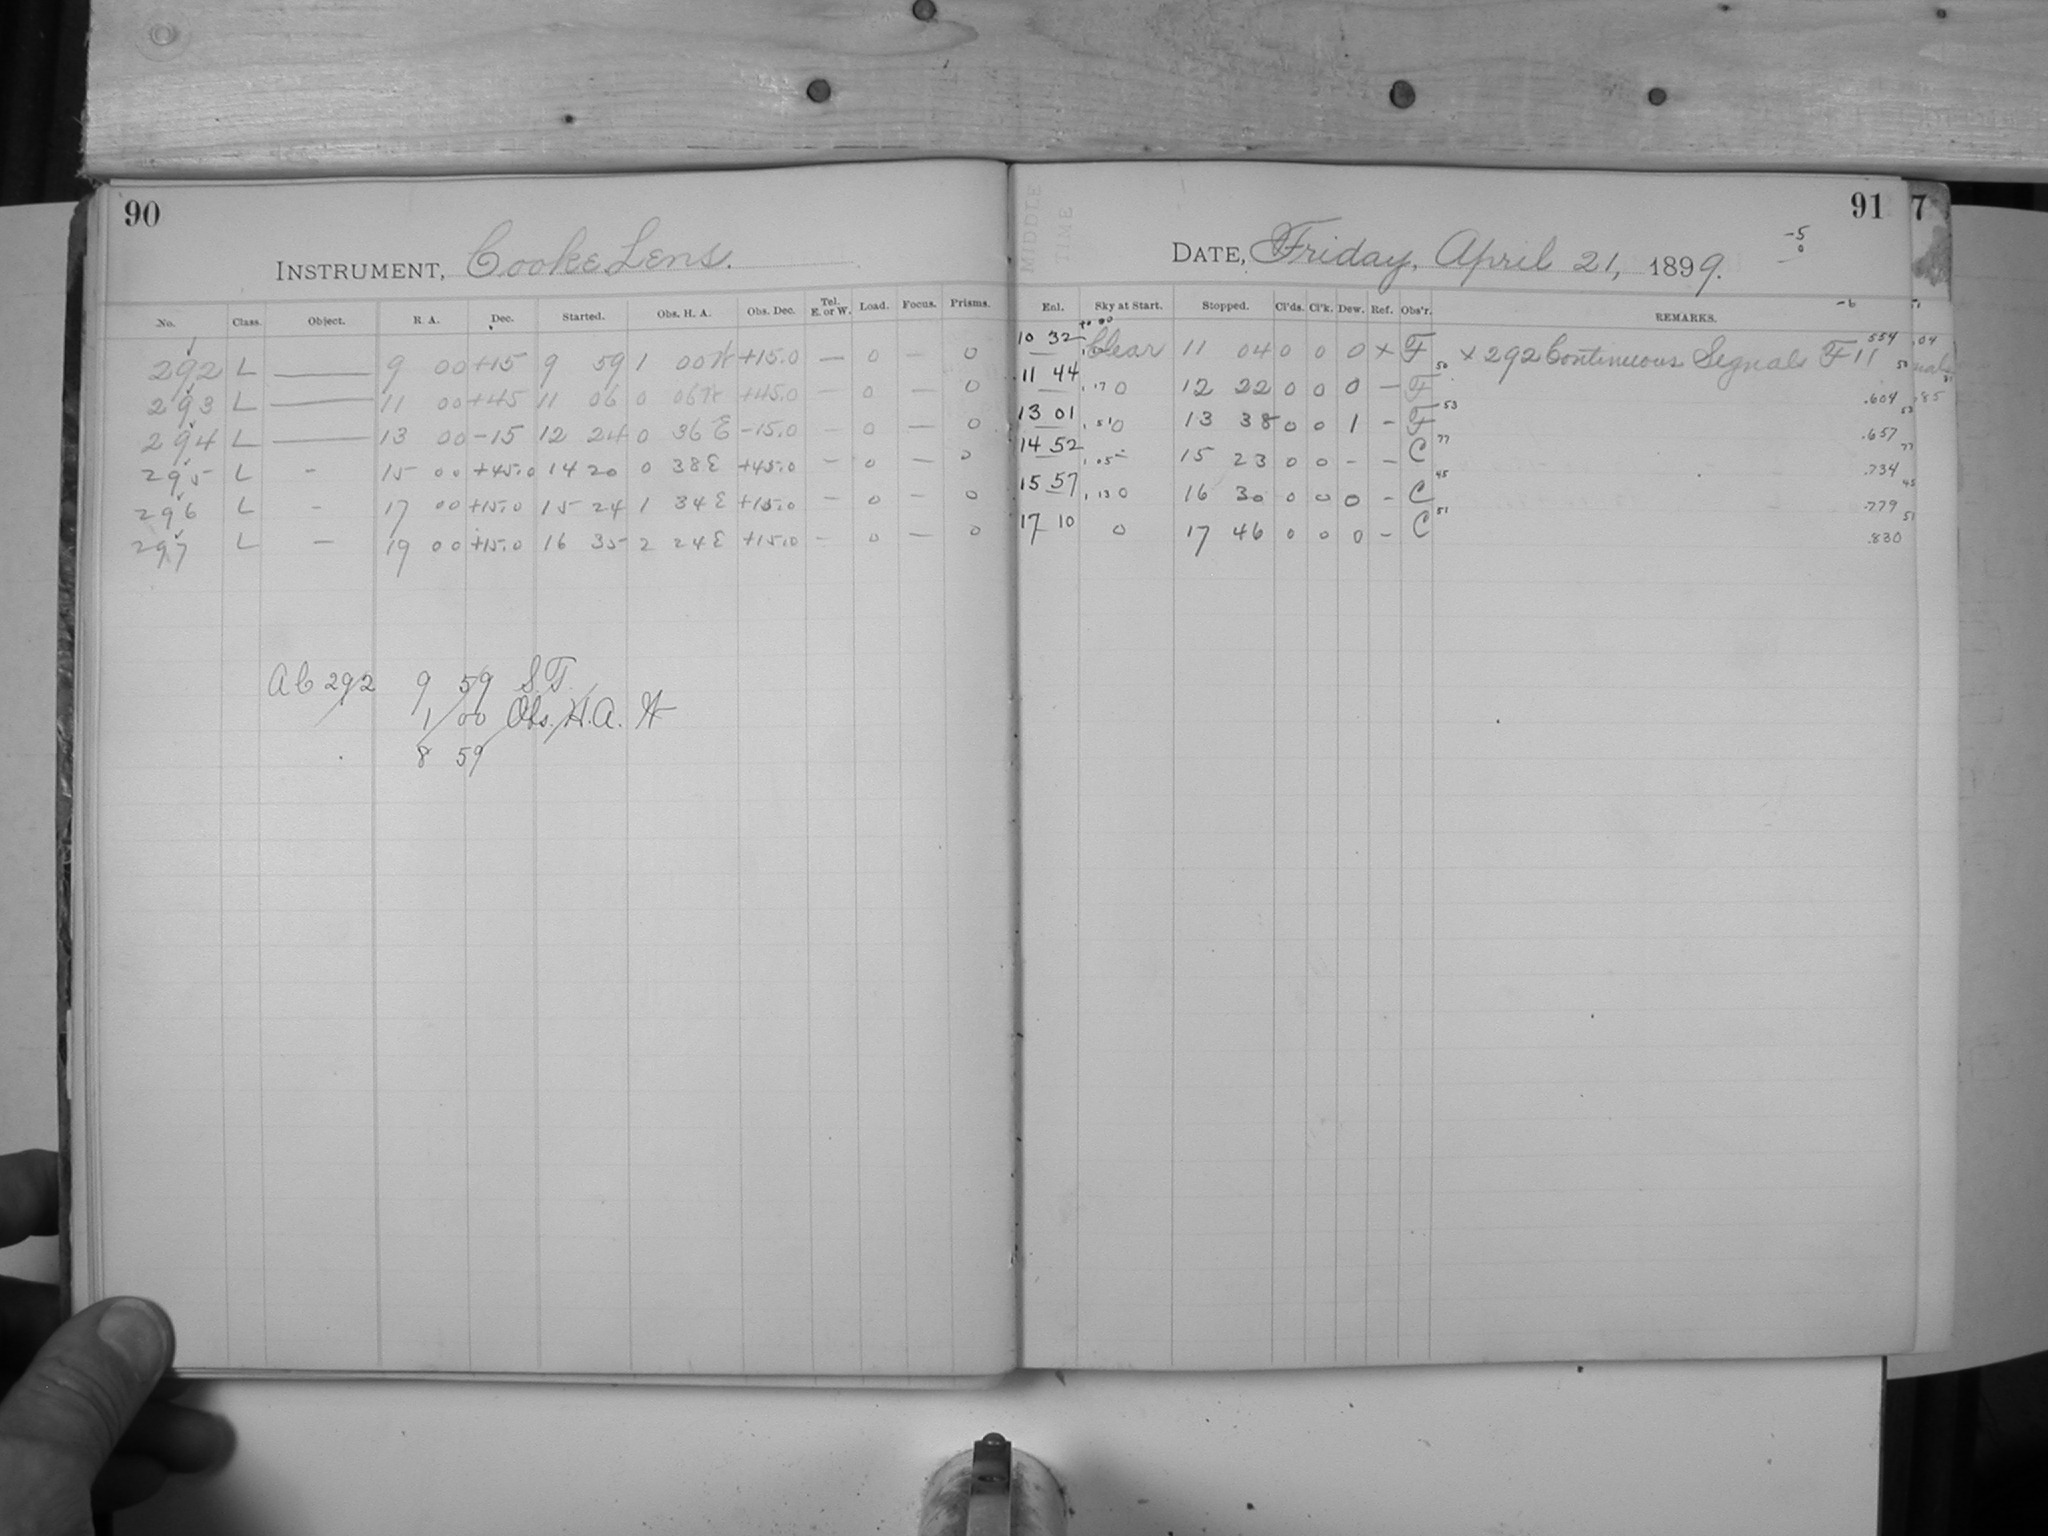 90
INSTRUMENT, Cooke Lens.
No. Class. Object. R. A. Dec. Started. Obs. H. A. Obs. Dec. Tel. E. or W. Load. Focus. Prisms.
292 L — 9 00 +15 9 59 1 00 W +15.0 — 0 — 0
293 L — 11 00 +45 11 06 0 06 W +45.0 — 0 — 0
294 L — 13 00 -15 12 24 0 36 E -15.0 — 0 — 0
295 L - 15 00 +45.0 14 20 0 38 E +45.0 — 0 — 0
296 L - 17 00 +15.0 15 24 1 34 E +15.0 — 0 — 0
297 L — 19 00 +15.0 16 35 2 24 E +15.0 - 0 — 0
AC 292 9 59 S.T.
1 00 Obs. H.A. W
8 59
MIDDLE
TIME
91
7
DATE, Friday, April 21, 1899.
-5
0
Enl. Sky at Start. Stopped. Cl'ds. Cl'k. Dew. Ref. Obs'r. REMARKS. -6
10 32 Clear 11 04 0 0 0 × F × 292 Continuous Signals F 11 554 .04
50
11 44 .17 0 12 22 0 0 0 — F .604 .85
53
13 01 .51 0 13 38 0 0 1 - F .657
77
14 52 .05 15 23 0 0 - - C .734
45
15 57 .13 0 16 30 0 0 0 - C .779
51
17 10 0 17 46 0 0 0 - C .830